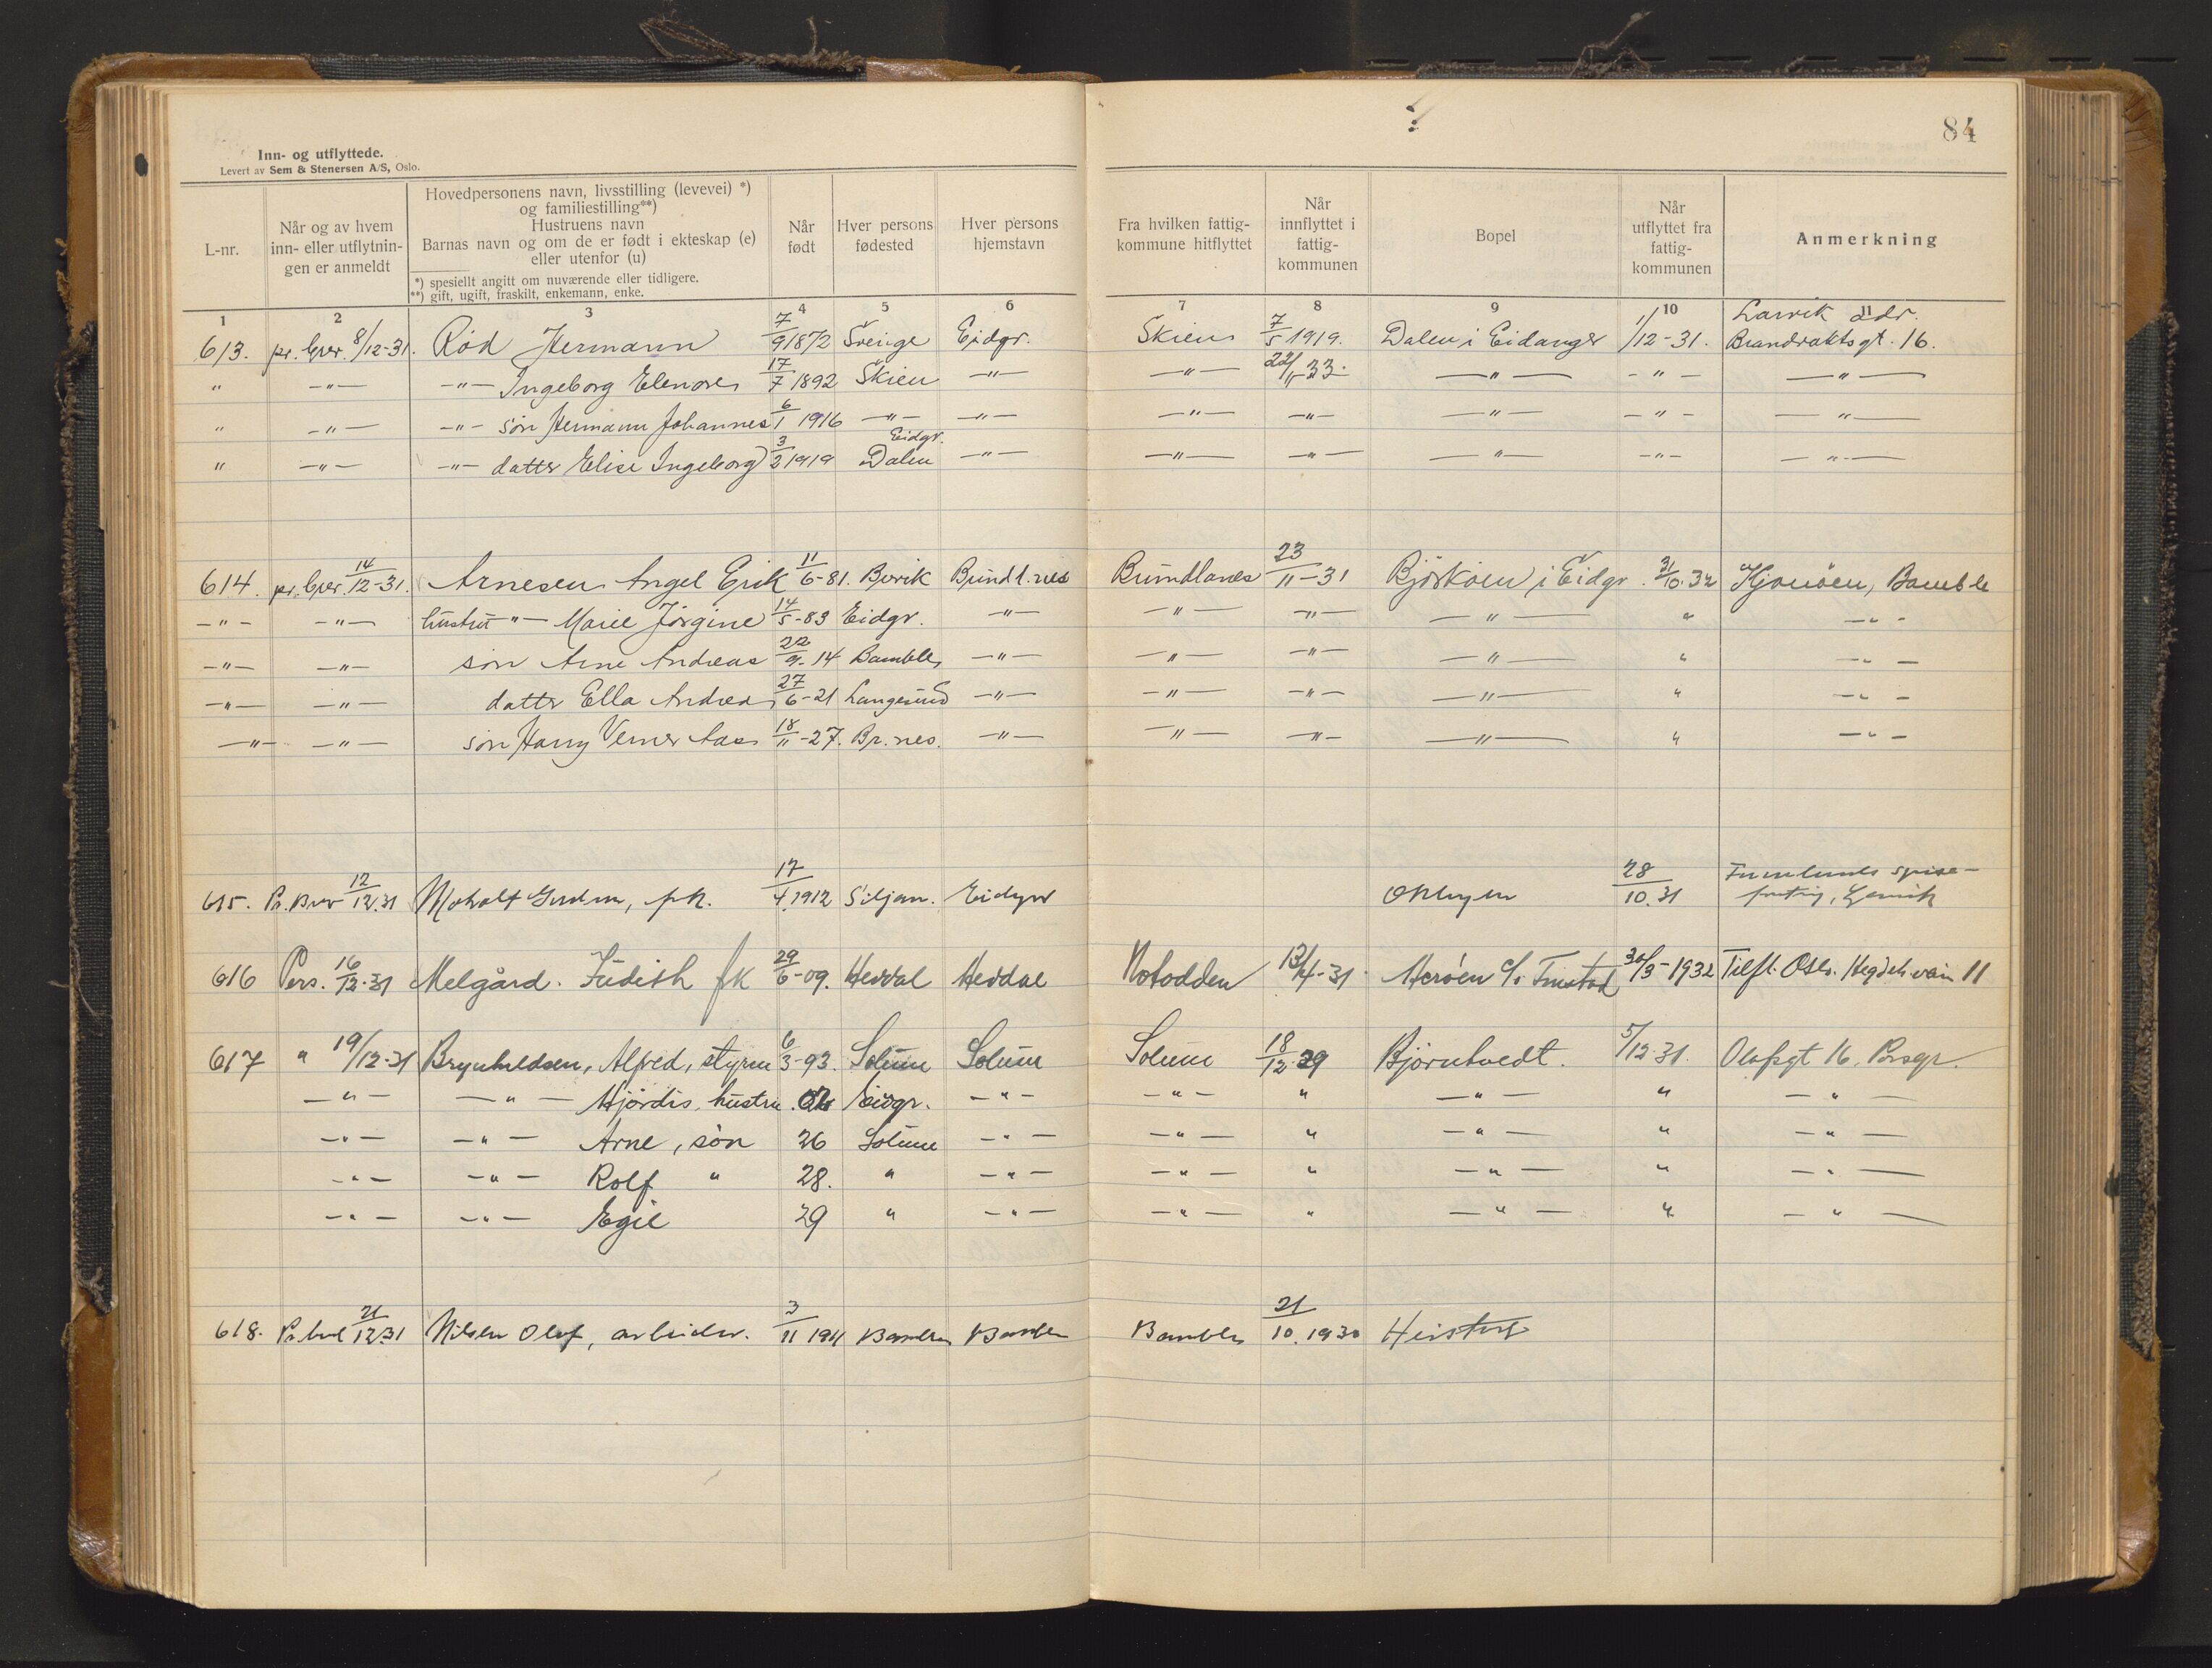 Inn- og utflyttede.
Levert av Sem & Stenersen A/S, Oslo.
84
L-nr.
Når og av hvem
inn- eller utflytnin-
gen er anmeldt
Hovedpersonens navn, livsstilling (levevei) *)
og familiestilling**)
Hustruens navn
Barnas navn og om de er født i ekteskap (e)
eller utenfor (u)
*) spesiellt angitt om nuværende eller tidligere.
**) gift, ugift, fraskilt, enkemann, enke.
Når
født
Hver persons
fødested
Hver persons
hjemstavn
Fra hvilken fattig-
kommune hitflyttet
Når
innflyttet i
fattig-
kommunen
Bopel
Når
utflyttet fra
fattig-
kommunen
Anmerkning
1 2 3 4 5 6 7 8 9 10 11
613. pr. brev. 8/12-31. Rød Hermann 7/9 1872 Sverige Eidgr. Skien 7/5 1919. Dalen i Eidanger 1/12-31. Larvik adr. Brandvaktsgt. 16.
" -"- -"- Ingeborg Elenore 17/7 1892 Skien -"- -"- 22/ 33. -"- -"- -"-
" -"- -"- søn Hermann Johannes 6/1 1916 -"- -"- -"- -"- -"- -"- -"-
" -"- -"- datter Elise Ingeborg 3/2 1919 Eidgr. Dalen -"- -"- -"- -"- -"- -"-
614. pr. brev. 14/12-31. Arnesen Angel Erik 11/6-81. Brevik Brundl.nes Brundlanes 23/11-31 Bjørkøen i Eidgr. 31/10.32 Bamble
-"- -"- hustru -"- Marie Jørgine 14/5-83 Eidgr. -"- -"- -"- -"- " -"-
-"- -"- søn Arne Andreas 22/9-14 Bamble -"- -"- -"- -"- " -"-
-"- -"- datter Ella Andrea 27/6-21 Langesund -"- -"- -"- -"- " -"-
-"- -"- søn Harry Verner Aas 18/11-27. Br.nes. -"- -"- -"- -"- " -"-
615. Pr. Brev 12/12.31 Moholt Gudrun, frk. 17/4.1912 Siljan. Eidgr 28/10.31
616 Pers. 16/12-31 Melgård. Judith fk 29/6-09. Heddal Heddal Notodden 13/4-31 Herøen c/o 30/3-1932 Tilfl. Oslo. 11
617 " 19/12-31 Brynhildsen, Alfred, styrm 6/3-93. Solum Solum Solum 18/12-29 Bjørntvedt. 5/12-31. Olafsgt 16, Porsgr.
-"- -"- Hjørdis, hustru. 02 Eidgr. -"- -"- " -"- " -"-
-"- -"- Arne, søn 26 Solum -"- -"- " -"- " -"-
-"- -"- Rolf " 28. " -"- -"- " -"- " -"-
-"- -"- Egil 29 " -"- -"- " -"- " -"-
618. 21/12.31 Nilsen Olaf, arbeider. 3/11 1911 Bamble Bamble Bamble 21/10.1930